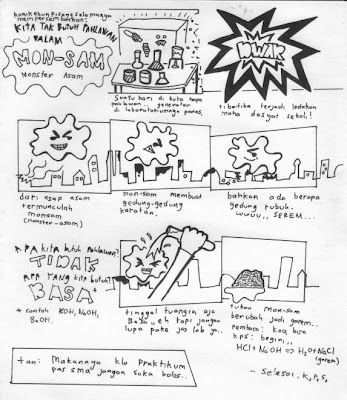 komik kebun pisang selamanya
mempersembahkan:
KITA TAK BUTUH PAHLAWAN
DALAM
MON-SAM
Monster Asam
Suatu hari di kota tanpa
pahlawan.. generator
di laboratoriumnya panas,
DUAR
tiba-tiba terjadi ledakan
maha dasyat sekali!
dari asap asam
termunculah
monsam
(monster-asam)
mon-sam membuat
gedung-gedung
karatan.
bahkan ada berapa
gedung rubuh.
wuuuu,, SEREM...
APA kita butuh PAHLAWAN?
TIDAK
APA YANG kita butuh?
BASA*
* contoh KOH, NaOH,
BaOH.
tinggal tuangin aja
Basa,, eh tapi jangan
lupa pake jas lab ya..
tuhan mon-sam
berubah jadi garem..
Pembaca: koq bisa
kps: begini,,
HCl + NaOH => H2O + NaCl
(garem)
- Selesai. K.P.S.
tan: Makannya klo Praktikum
pas sma jangan suka bolos..